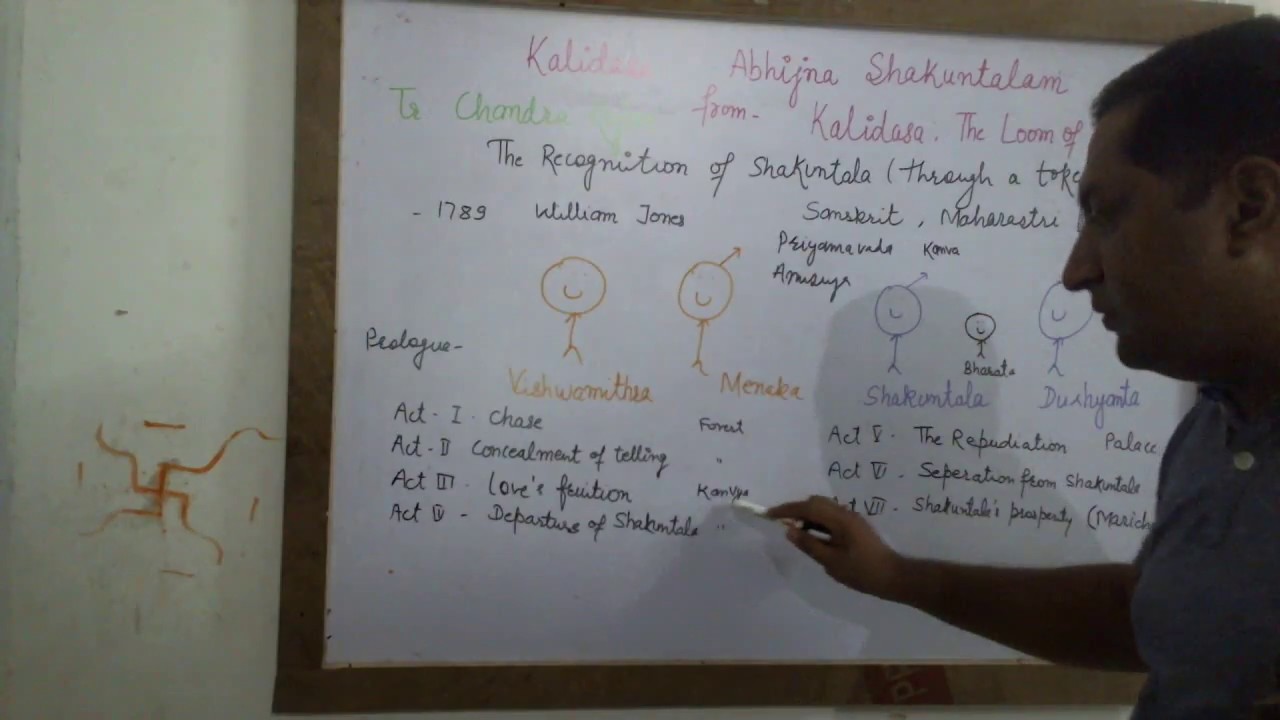 Kalidasa Abhijna Shakuntalam
Tr Chandra from- Kalidasa. The Loom of
The Recognition of Shakuntala (through a toke
- 1789 William Jones Sanskrit, Maharastri
Priyamavada Kanva
Anusuya
Prologue-
Bharata
Vishwamithra Menaka Shakuntala Dushyanta
Act - I Chase Forest
Act - II Concealment of telling "
Act III - Love's fruition Kanvas
Act IV - Departure of Shakuntala "
Act V - The Repudiation Palace
Act VI - Seperation from Shakuntala
Act VII - Shakuntala's prosperity (Marich